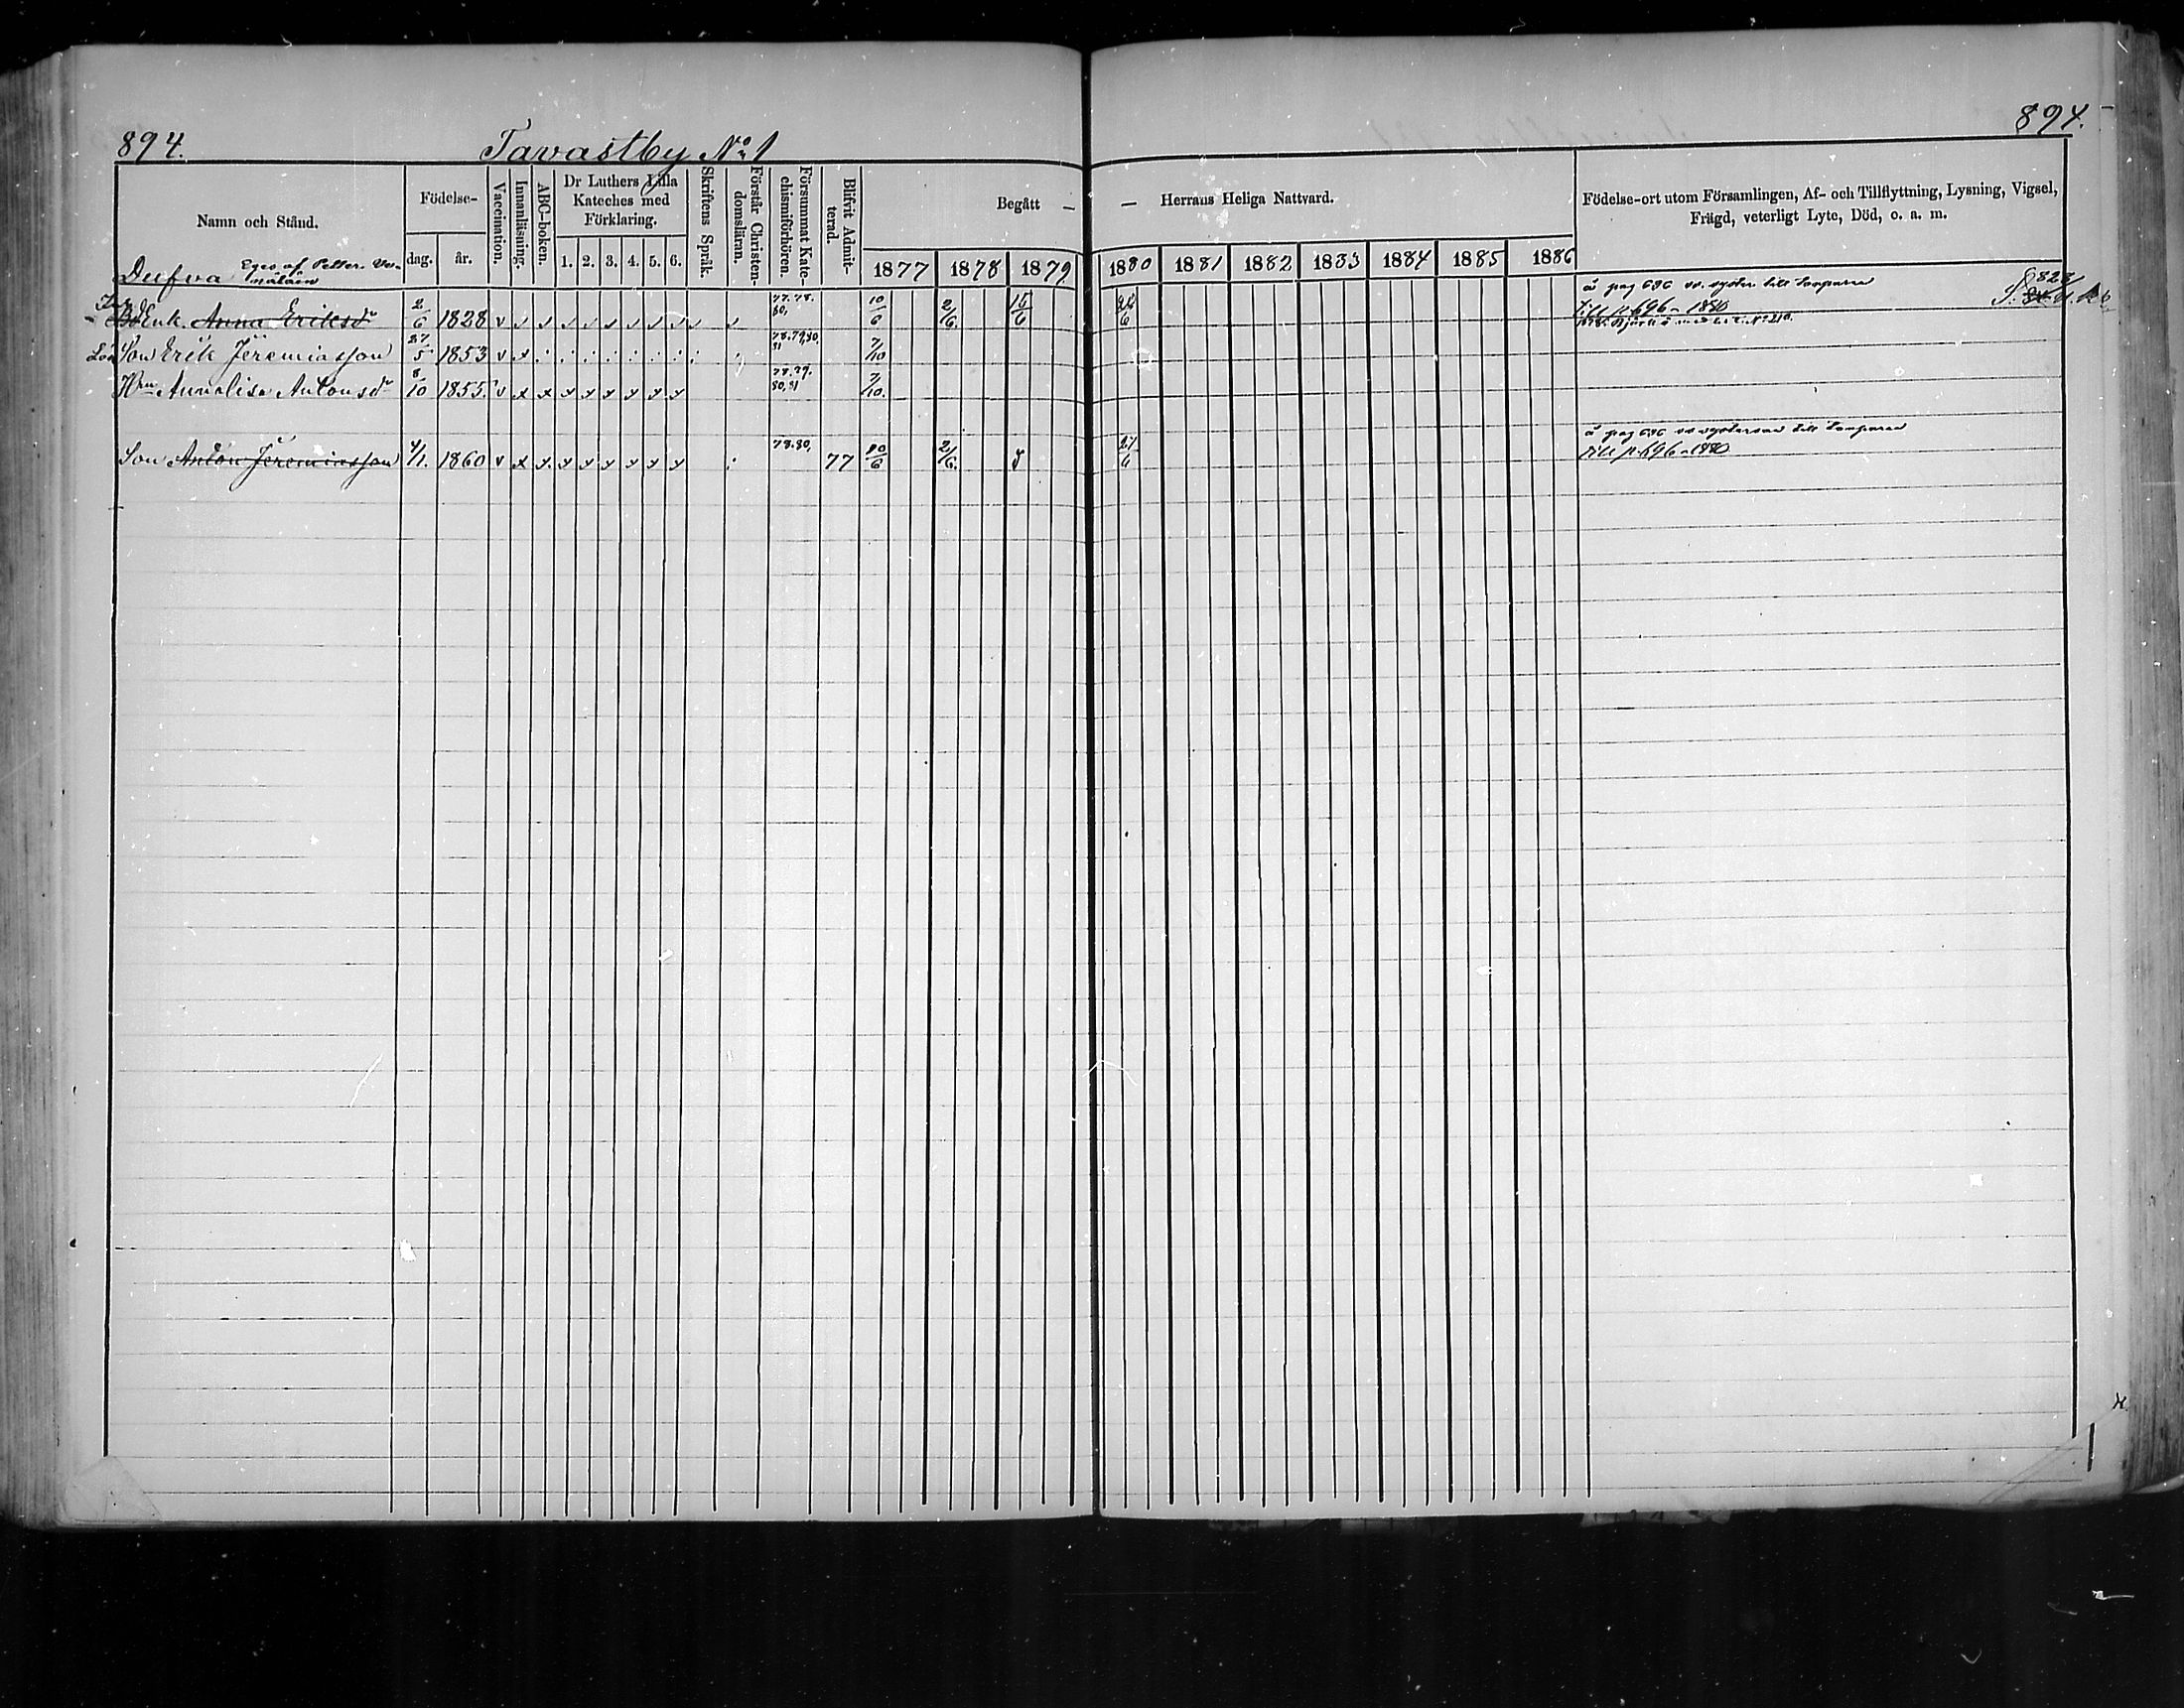 894. Tavastby No 1 894.
Namn och Stånd. Födelse- dag. år. Vaccination. Innanläsning. ABC-boken. Dr Luthers Lilla Kateches med Förklaring. 1. 2. 3. 4. 5. 6. Skriftens Språk. Förstår Christendomsläran. Försummat Katechismiförhören. Blifvit Admitterad. Begått — — Herrans Heliga Nattvard. Födelse-ort utom Församlingen, Af- och Tillflyttning, Lysning, Vigsel, Frägd, veterligt Lyte, Död, o. a. m.
1877 1878 1879 1880 1881 1882 1883 1884 1885 1886
Dufva Eges af Petter
å pag 696 ss. syster till
Enk. Anna Eriksdr 2/6 1828 v 77.78. 80, 10/6 2/6. 15/6 Till p. 696 - 1880
Son Erik Jeremiasson 27/5 1853 v x 78.79,80, 81 7/10
Hru Annalisa Antonsdr 8/10 1855. v x x y y y y y y 78.79. 80,81 7/10.
å pag 696 ss systerson till
Son Anton Jeremiasson 4/1. 1860 v x y. y y y y y y 78.80, 77 10/6 2/6. 27/6 Till p. 696 - 1880